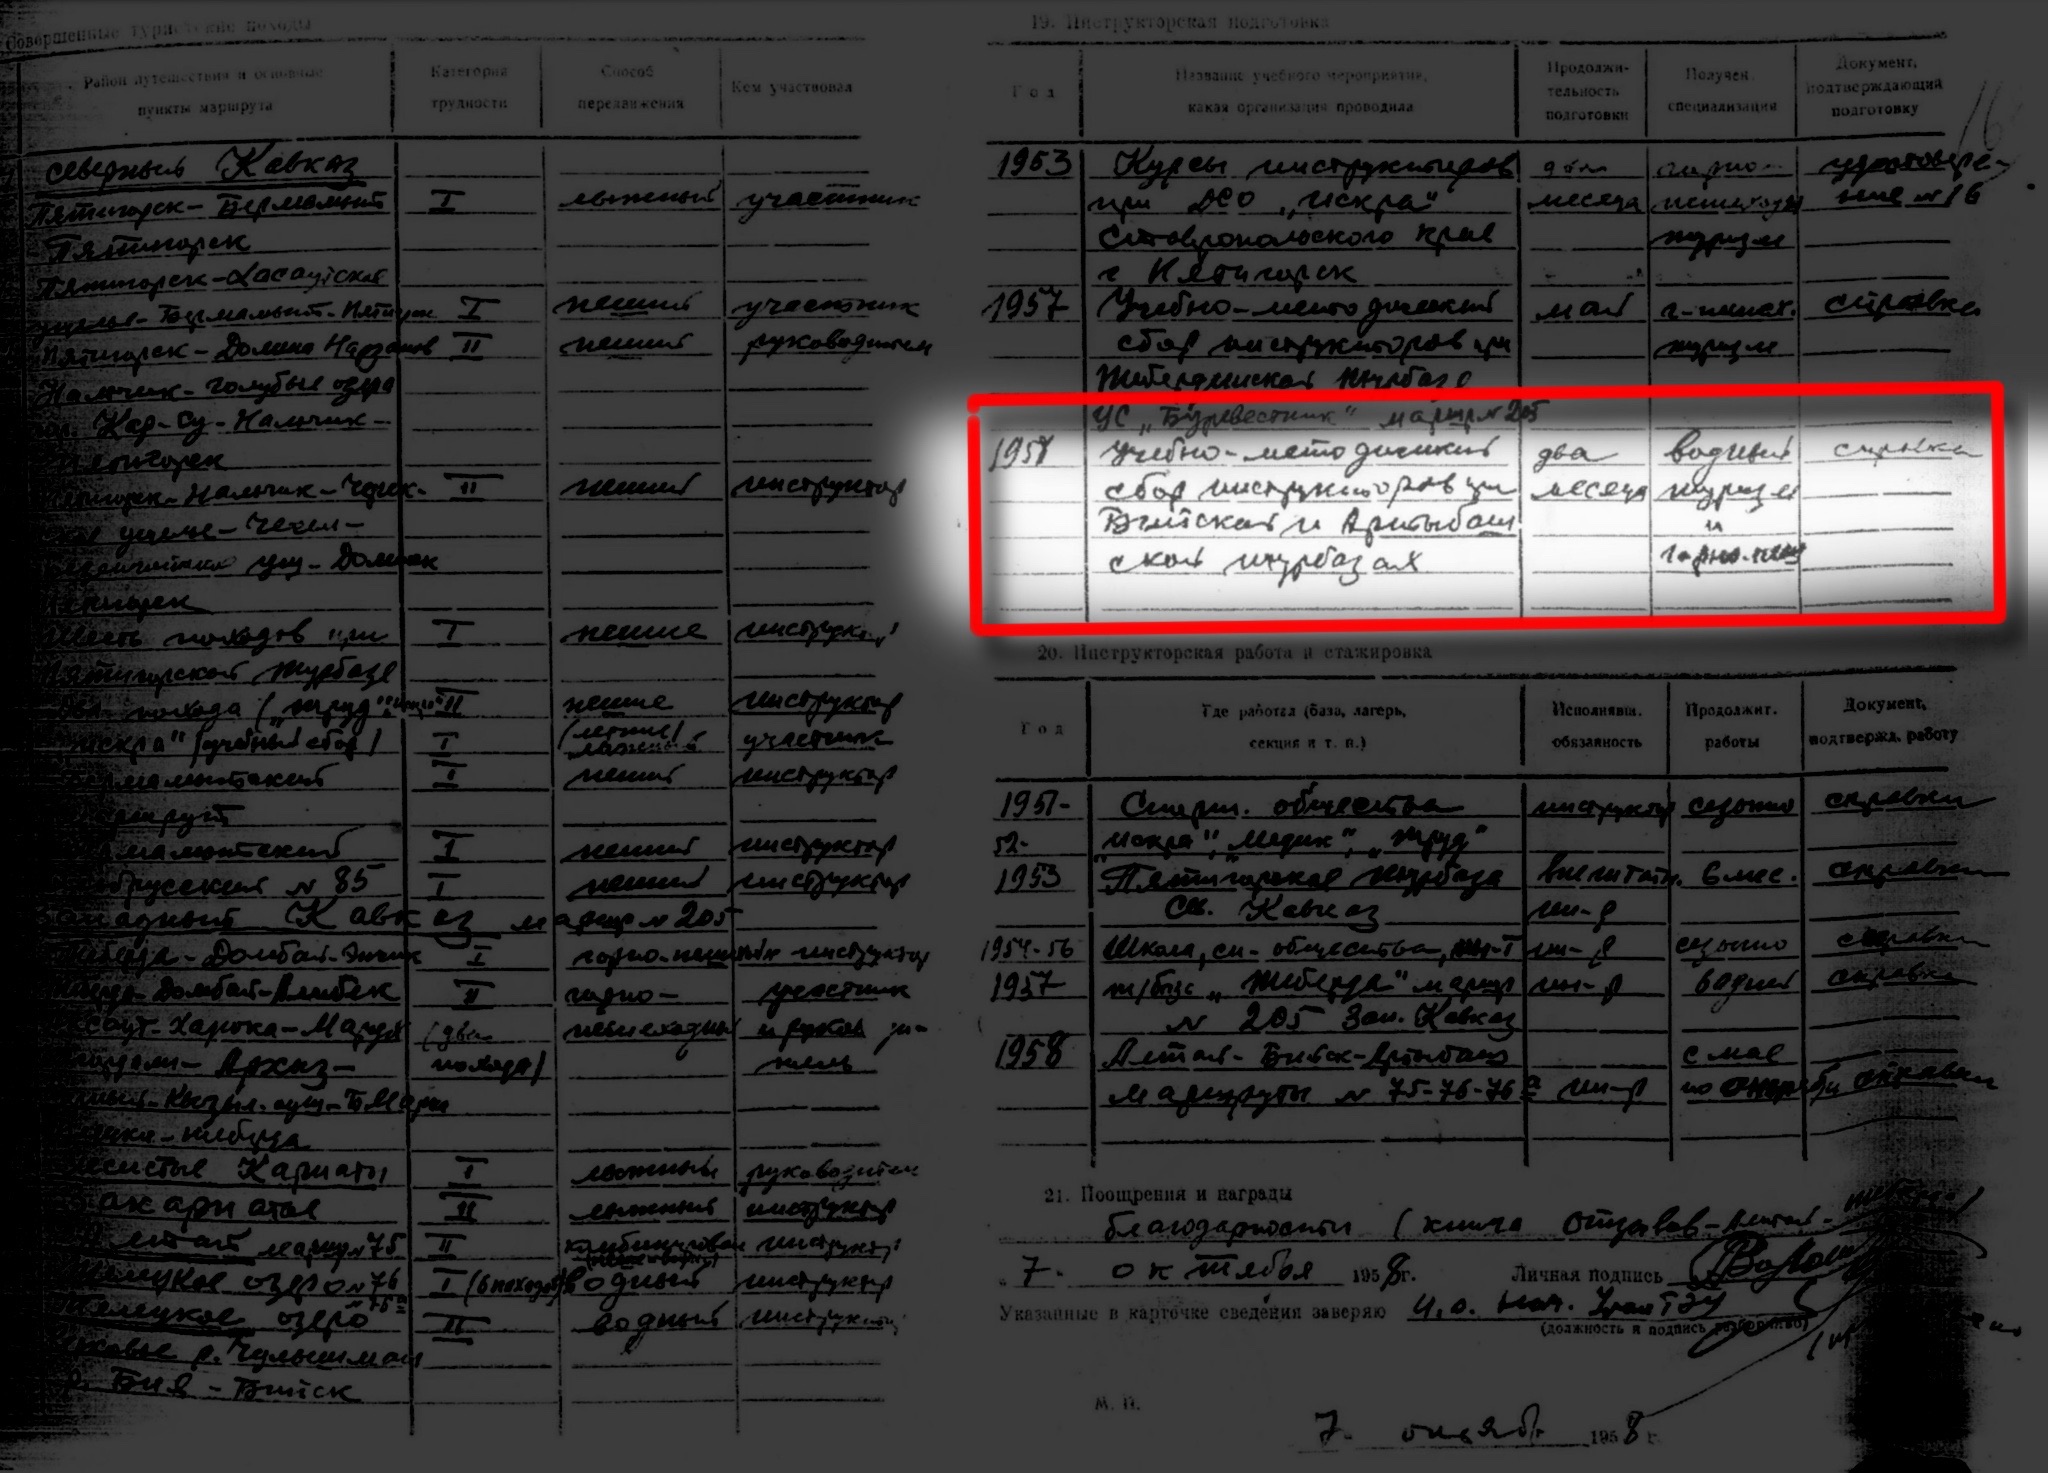 Совершенные туристские походы
Район путешествия и основные пункты маршрута
Категория трудности
Способ передвижения
Кем участвовал
Северный Кавказ
Пятигорск - Бермамыт I лыжный участник
- Пятигорск
Пятигорск - Хасаутское
ущелье - Бермамыт - Пятигорск I пеший участник
Пятигорск - Долина Нарзанов II пеший руководителем
Нальчик - голубые озера
Кар-Су - Нальчик -
Пятигорск
Пятигорск - Нальчик - Черек- II пеший инструктор
ущелье - Чегем -
ущ - Долинск
Пятигорск
Шесть походов при I пешие инструктор
Пятигорской турбазе
Два похода („Труд" II пешие инструктор
„Искра" (учебный сбор) I (летние) лыжный участник
Бермамытский I пеший инструктор
маршрут
Бермамытский I пеший инструктор
Эльбрусский № 85 I пеший инструктор
Западный Кавказ маршр № 205
Теберда - Домбай - I горно-пеший инструктор
Теберда - Домбай - Алибек II горно- участник
Аксаут - Харюка - Маруха (два пешеходный и руководи-
- Архыз - похода) тель
Кызыл - ауш - Б Мары
- Теберда
Лесистые Карпаты I лыжный руководителем
Закарпатье II лыжный инструктор
Алтай маршр № 75 II комбинирован инструкт
Телецкое озеро № 76 I (6 походов) водный инструктор
Телецкое озеро 76а II водный инструктор
Низовье р. Чулышман
р. Бия - Бийск
19. Инструкторская подготовка
Год
Название учебного мероприятия, какая организация проводила
Продолжительность подготовки
Получен. специализация
Документ, подтверждающий подготовку
1953 Курсы инструкторов два горно- удостовере-
при ДСО „Искра" месяца пешеходн ние № 16
Ставропольского края туризм
г Пятигорск
1957 Учебно-методический май г-пешех. справка
сбор инструкторов при туризм
Тебердинской турбазе
УС „Буревестник" маршр № 205
1958 Учебно-методический два водный справка
сбор инструкторов при месяца туризм
Бийской и Артыбаш и
ской турбазах горно-пеш
20. Инструкторская работа и стажировка
Год
Где работал (база, лагерь, секция и т. п.)
Исполнявш. обязанность
Продолжит. работы
Документ, подтвержд. работу
1951- Спорт. общества инструктор сезонно справки
52- „Искра", „Медик", „Труд"
1953 Пятигорская турбаза внештатн. 6 мес. справки
Св. Кавказ ин-р
1954-56 Школа, сп. общества, ин-т ин-р сезонно справки
1957 т/база „Теберда" маршр ин-р водный справка
№ 205 Зап. Кавказ
1958 Алтай - Бийск - Артыбаш с мая
Маршруты № 75-76-76а ин-р по октябрь справки
21. Поощрения и награды
благодарности (книга отзывов - Алтай -
„7- октября 1958 г. Личная подпись
Указанные в карточке сведения заверяю И.о. нач. УралТЭУ
(должность и подпись разборчиво)
М. П.
7. октябр 1958 г.